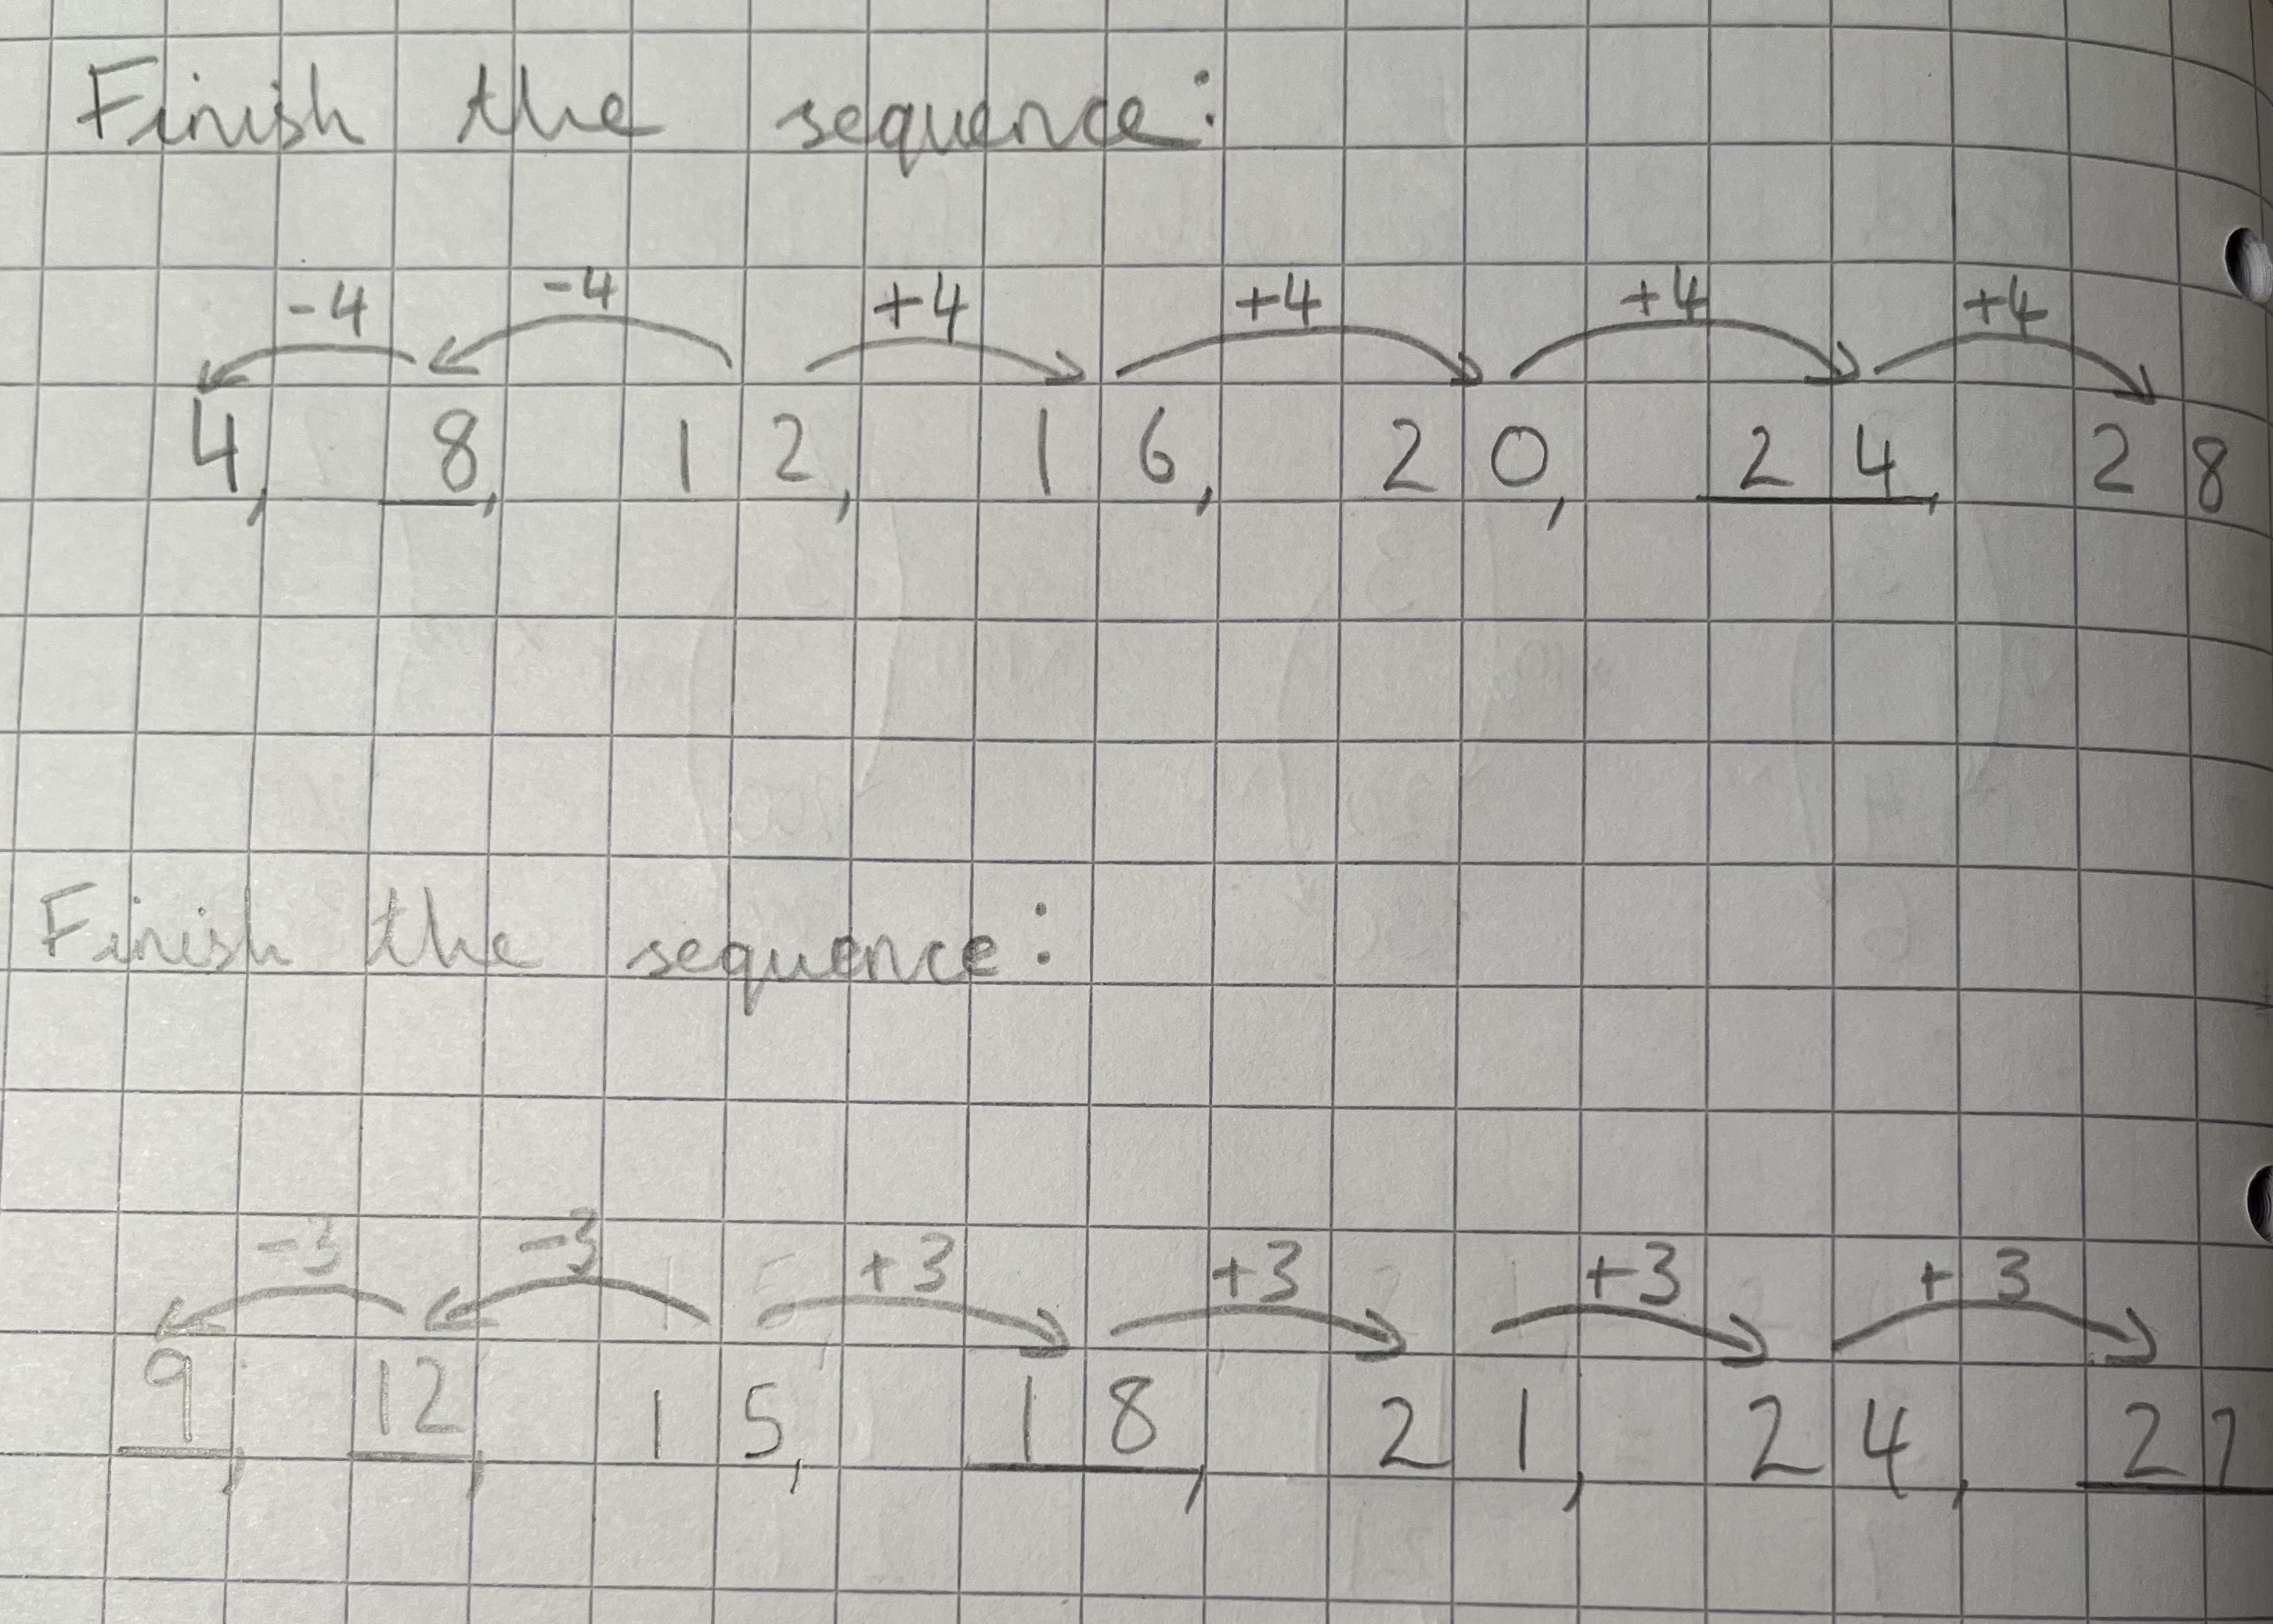 Finish the sequence:
-4 -4 +4 +4 +4 +4
4, 8, 12, 16, 20, 24, 28
Finish the sequence:
-3 -3 +3 +3 +3 +3
9, 12, 15, 18, 21, 24, 27